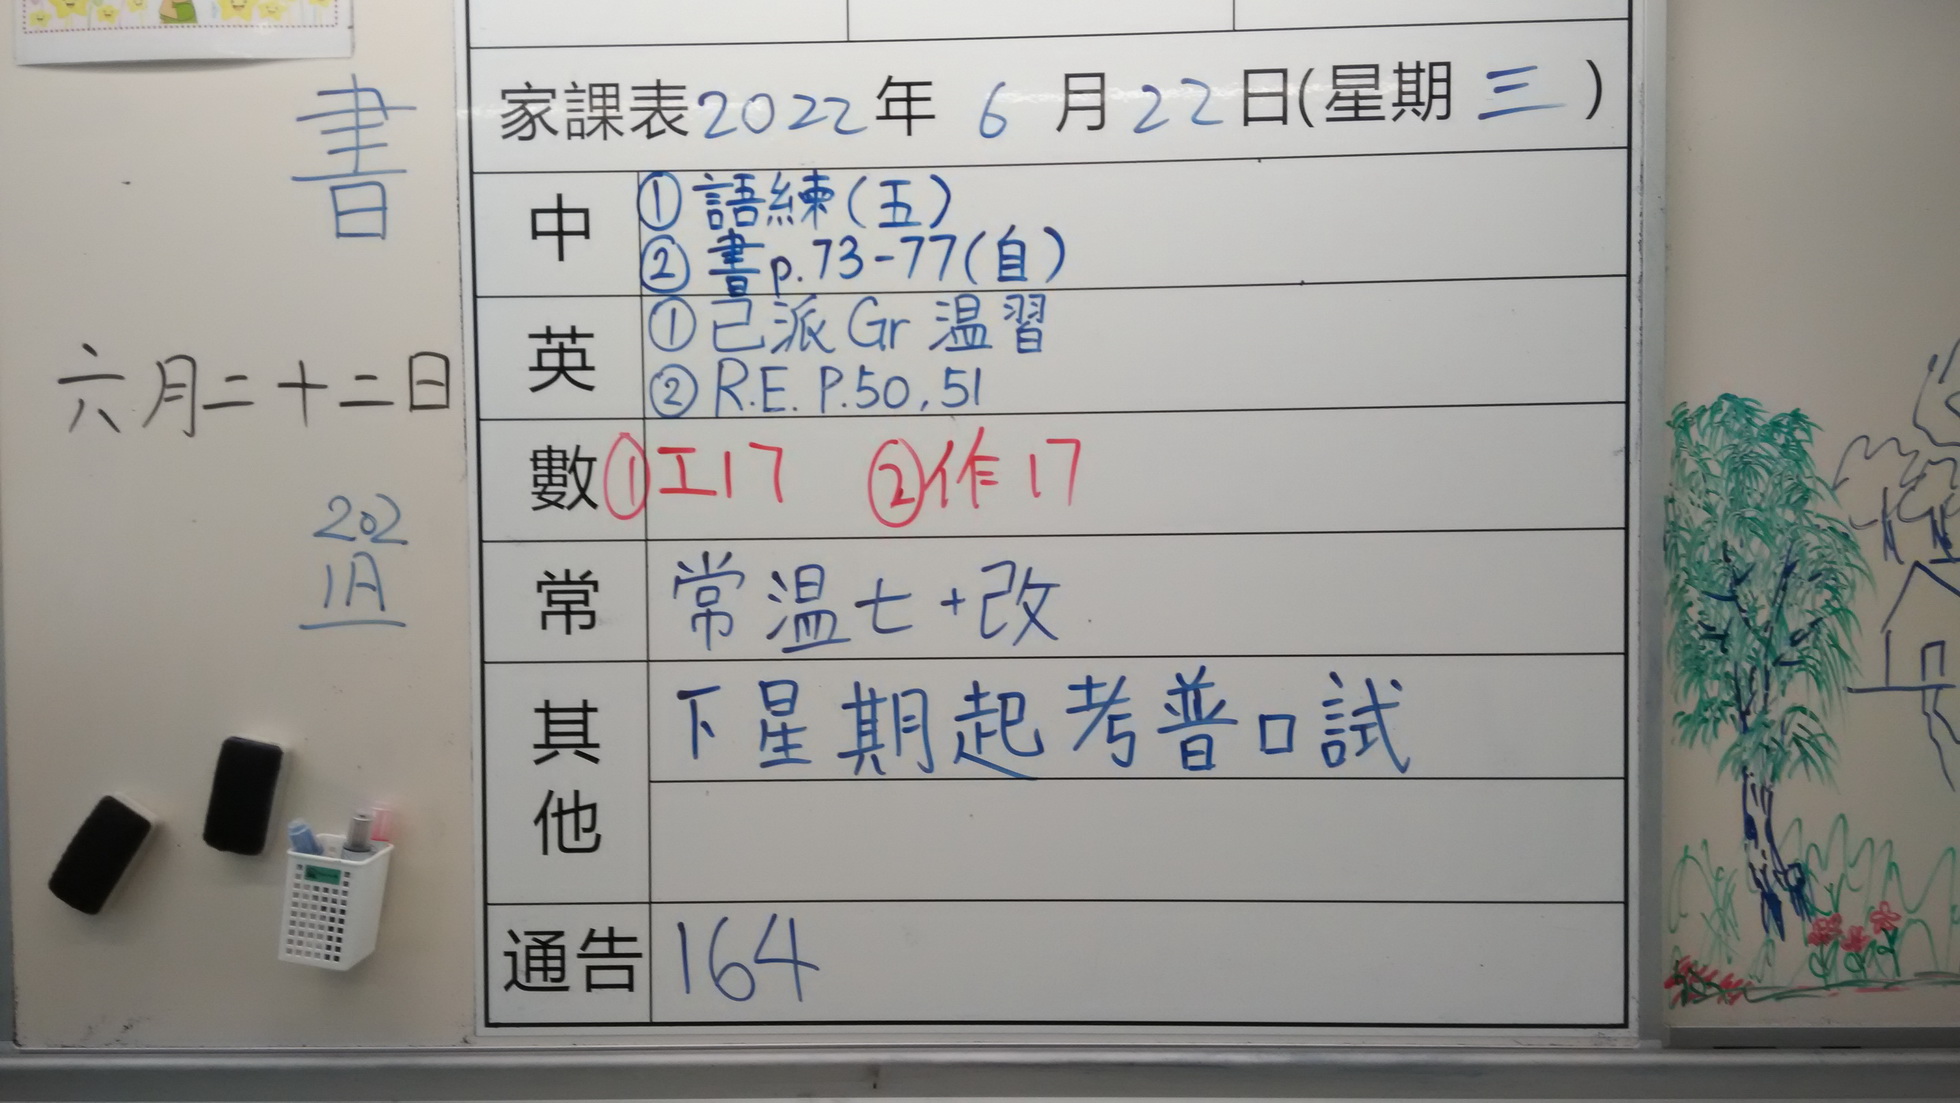 書
六月二十二日
202
1A
家課表2022年 6 月 22 日(星期 三 )
中
① 語練(五)
② 書p.73-77(自)
英
① 已派 Gr 温習
② R.E. P.50,51
數 ①工17 ②作17
常 常温七+改
其他
下星期起考普口試
通告 164